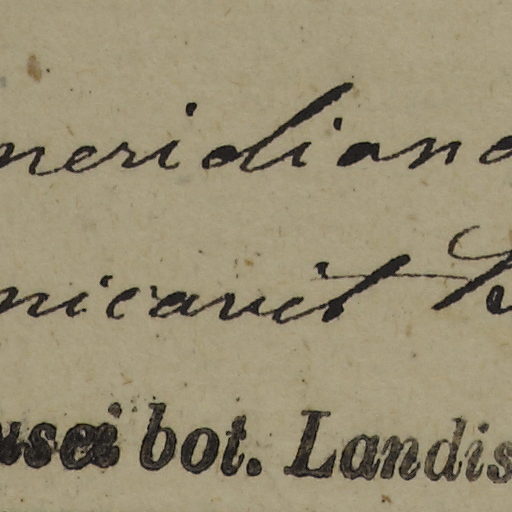 meridiana
nicavit
usei bot. Landis